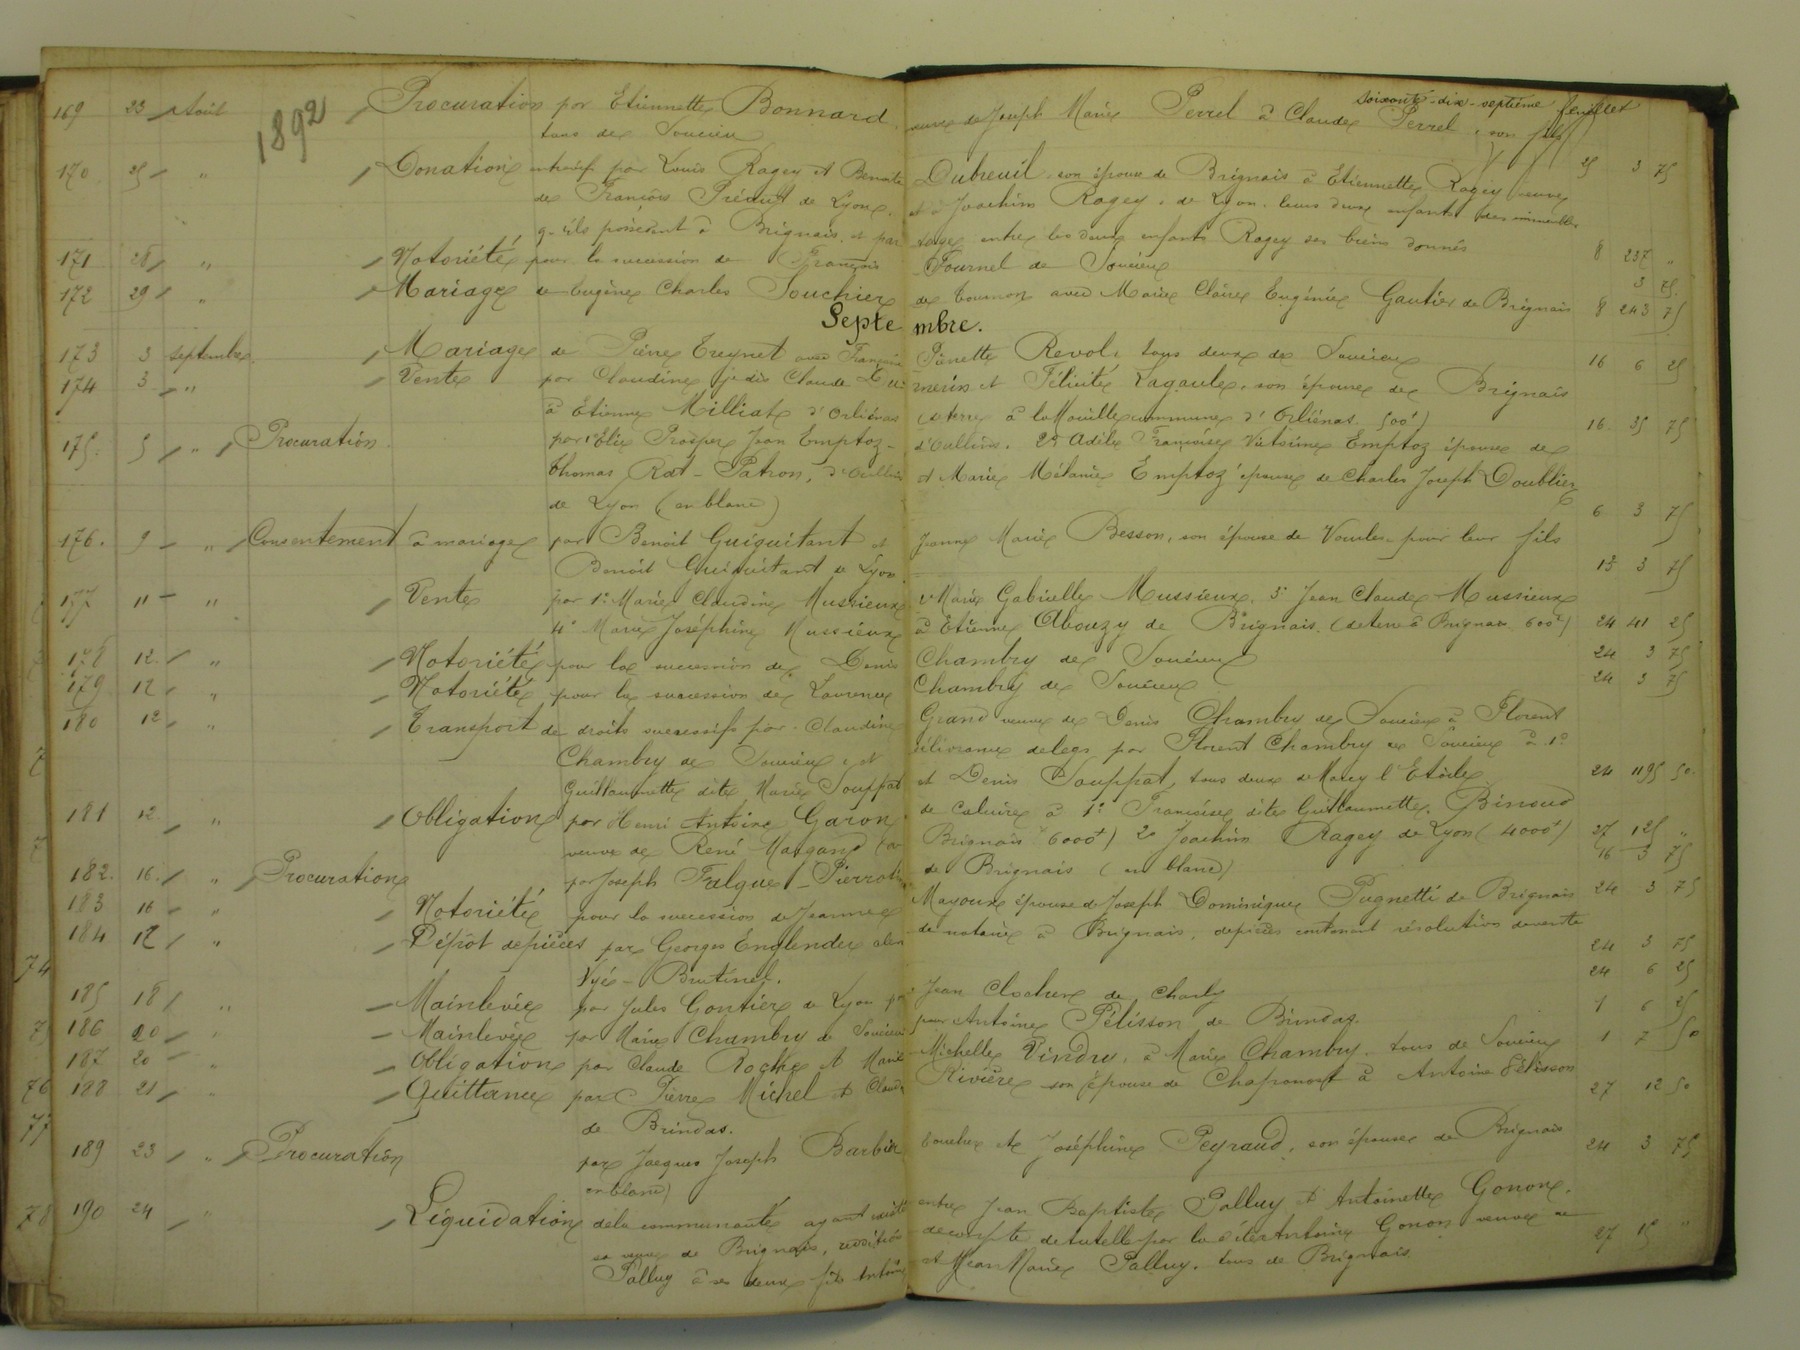 soixante-dix-septième feuillet
1892
169 23 Août Procuration par Etiennette Bonnard veuve de Joseph Marie Perrel à Claude Perrel, son fils
tous de Soucieu 25 3 75
170 25 " Donation entrevifs par Louis Ragey et Benoite Dubreuil son épouse de Brignais à Etiennette Ragey veuve
de François de Lyon, et à Joachim Ragey, de Lyon, leurs deux enfants des immeubles
qu'ils possèdent à Brignais, et par tage entre les deux enfants Ragey des biens donnés 8 237 "
171 28 " Notoriété pour la succession de François Fournel de Soucieu 3 75
172 29 " Mariage de Eugène Charles Souchier de Tournon avec Marie Claire Eugénie Gautier de Brignais 8 243 75
Septembre.
173 3 septembre Mariage de Pierre Treynet avec Françoise Pierrette Revol, tous deux de Soucieu 16 6 25
174 3 " Vente par Claudine jadis Claude Dumerin et Félicité Lagaule, son épouse de Brignais
à Etienne Milliat d'Orliénas (terre à la Mouille commune d'Orliénas 500f) 16 35 75
175 5 " Procuration par 1° Elie Prosper Jean Emptoz d'Oullins. 2° Adèle Françoise Victorine Emptoz épouse de
Thomas Rat-Patron, d'Oullins et Marie Mélanie Emptoz épouse de Charles Joseph Doublier
de Lyon (en blanc) 6 3 75
176. 9 " Consentement à mariage par Benoit Guiguitant et Jeanne Marie Besson, son épouse de Vourles pour leur fils
Benoit Guiguitant de Lyon 13 3 75
177 11 " Vente par 1° Marie Claudine Mussieux 2° Marie Gabrielle Mussieux, 3° Jean Claude Mussieux
4° Marie Joséphine Mussieux à Etienne Abouzy de Brignais. (de terre à Brignais 600f) 24 41 25
178 12. " Notoriété pour la succession de Denis Chambry de Soucieu 24 3 75
179 12 " Notoriété pour la succession de Laurence Chambry de Soucieu 24 3 75
180 12 " Transport de droits successifs par Claudine Grand veuve de Denis Chambry de Soucieu à Florent
Chambry de Soucieu, et délivrance de legs par Florent Chambry de Soucieu à 1°
Guillaumette dite Marie Souppat et Denis Souppat, tous deux de Marcy l'Etoile 24 1195 50
181 12. " Obligation par Henri Antoine Garon de Caluire à 1° Françoise dite Guillaumette Binoud
veuve de René Margand Brignais 6000f) 2° Joachim Ragey de Lyon (4000f) 27 125 "
182. 16. " Procuration par Joseph Falque-Pierrotin de Brignais (en blanc) 16 3 75
183 16 " Notoriété pour la succession de Jeanne Mayoux épouse de Joseph Dominique Pugnetti de Brignais 24 3 75
184 12 " Dépôt de pièces par Georges Englender clerc de notaire à Brignais, de pièces contenant résolution de vente
Nyé-Brutinel. 24 3 75
185 18 " Mainlevée par Jules Gontier de Lyon pr Jean Clocher de Charly 24 6 25
186 20 " Mainlevée par Marie Chambry de Soucieu pour Antoine Pélisson de Brindas. 1 6 25
187 20 " Obligation par Claude Roche et Marie Michelle Vindry, à Marie Chambry. tous de Soucieu 1 7 50
188 21 " Quittance par Pierre Michel et Claudine Rivière son épouse de Chaponost à Antoine Pélisson
de Brindas. 27 12 50
189 23 " Procuration par Jacques Joseph Barbier et Joséphine Peyraud, son épouse de Brignais
en blanc) 24 3 75
190 24 " Liquidation de la communauté ayant existé entre Jean Baptiste Palluy et Antoinette Gonon,
sa veuve de Brignais, reddition de compte de tutelle par la dite Antoinette Gonon veuve
Palluy à ses deux fils Antoine et Jean Marie Palluy, tous de Brignais 27 15 "
74
75
76
77
78